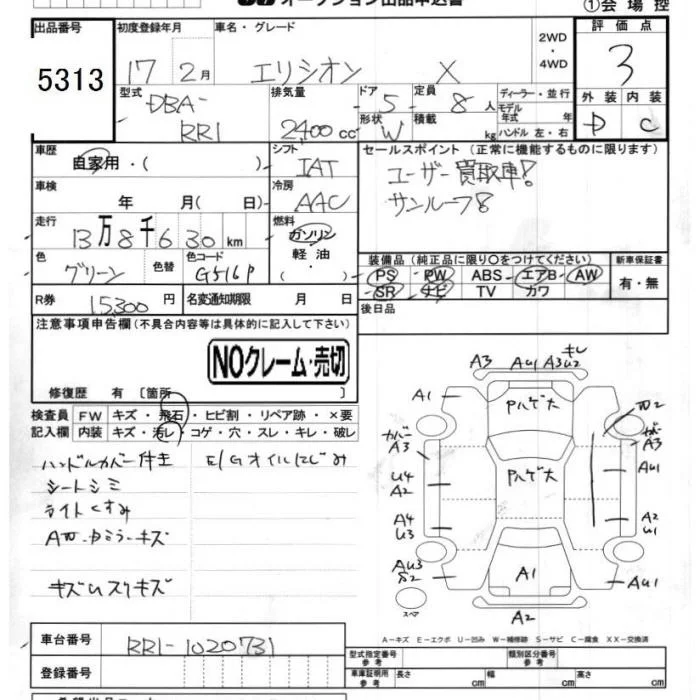 オークション出品申込書
①会場控
出品番号 初度登録年月 車名・グレード 評価点
5313 17 2月 エリシオン X 2WD・4WD 3
型式 DBA-RR1 排気量 2400cc ドア 5 定員 8人 ディーラー・並行
形状 W 積載 kg モデル年式 年 ハンドル 左・右
外装 内装
D C
車歴 自家用・( ) シフト IAT
セールスポイント(正常に機能するものに限ります)
ユーザー買取車!
サンルーフ
車検 年 月( 日) 冷房 AAC
走行 13万8千630km 燃料 ガソリン・軽油・( )
色 グリーン 色替 色コード G516P
装備品(純正品に限り○をつけてください) 新車保証書
PS PW ABS エアB AW 有・無
SR ナビ TV カワ
R券 15300円 名変通知期限 月 日
後日品
注意事項申告欄(不具合内容等は具体的に記入して下さい)
NOクレーム・売切
修復歴 有〔箇所 〕
検査員 FW キズ・飛石・ヒビ割・リペア跡・×要
記入欄 内装 キズ・汚レ・コゲ・穴・スレ・キレ・破レ
ハンドルカバー付キ E/Gオイルにじみ
シートシミ
ライトくすみ
キズ
A3 AU1 A3 U2 キレ
A1 Pハゲ大 W2
カバー A3 A3
U4 A2 Pハゲ大 AU1
A4 U3 A2 U1
AU3 S2 A1 AU1
スペア A2
A-キズ E-エクボ U-凹み W-補修跡 S-サビ C-腐食 XX-交換済
車台番号 RR1-1020731
型式指定番号 参考 類別区分番号 参考
登録番号
車庫証明用 参考 長さ cm 幅 cm 高さ cm